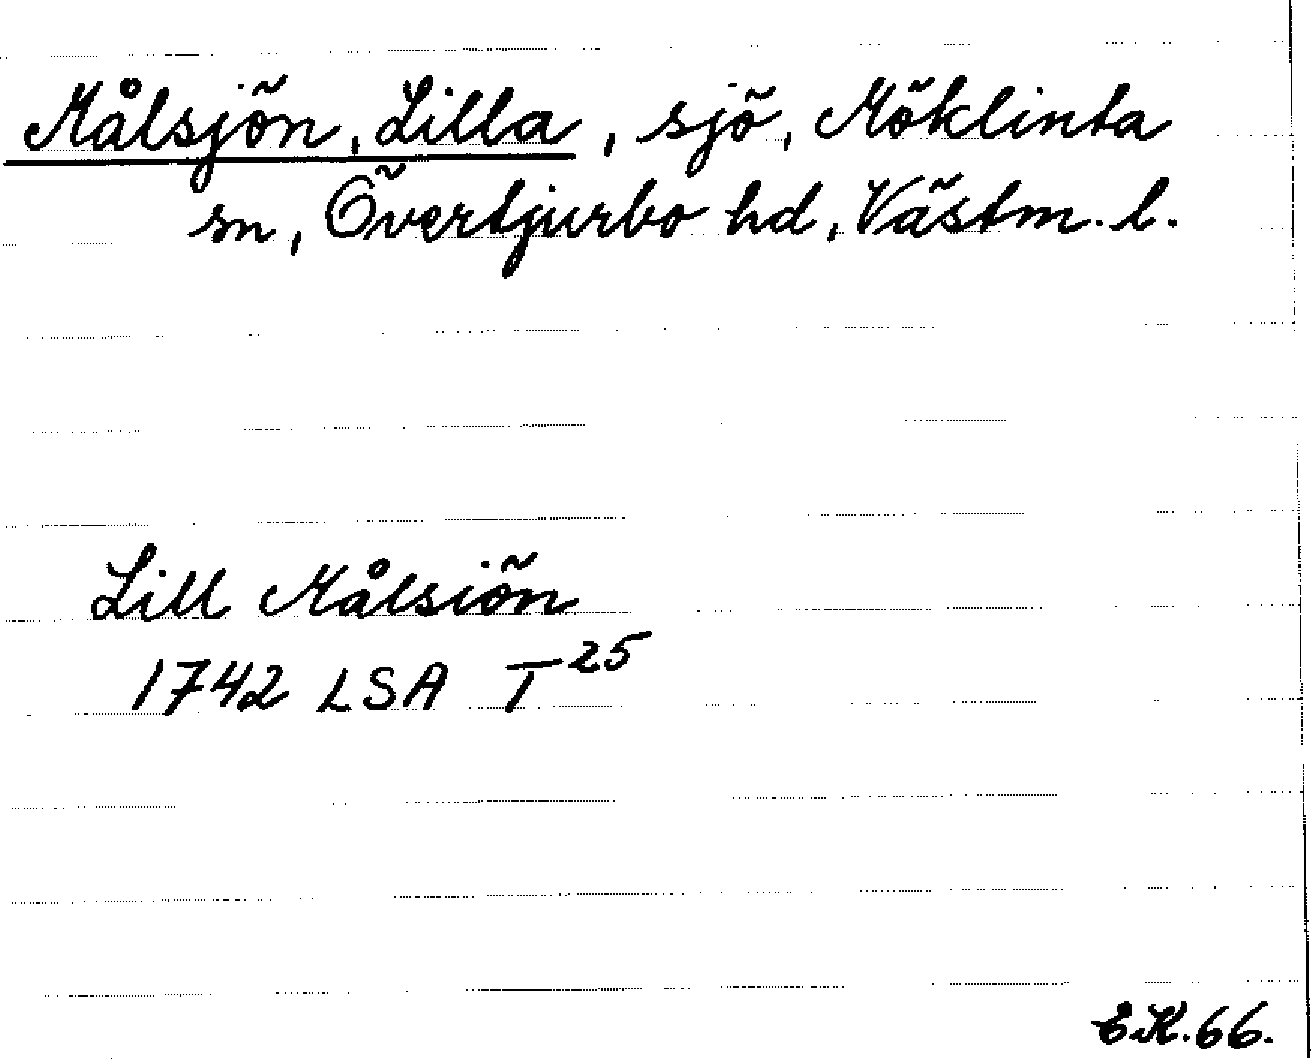 Målsjön, Lilla, sjö, Möklinta
sn, Övertjurbo hd, Västm. l.
Lill Målsiön
1742 LSA T25
E.K.66.